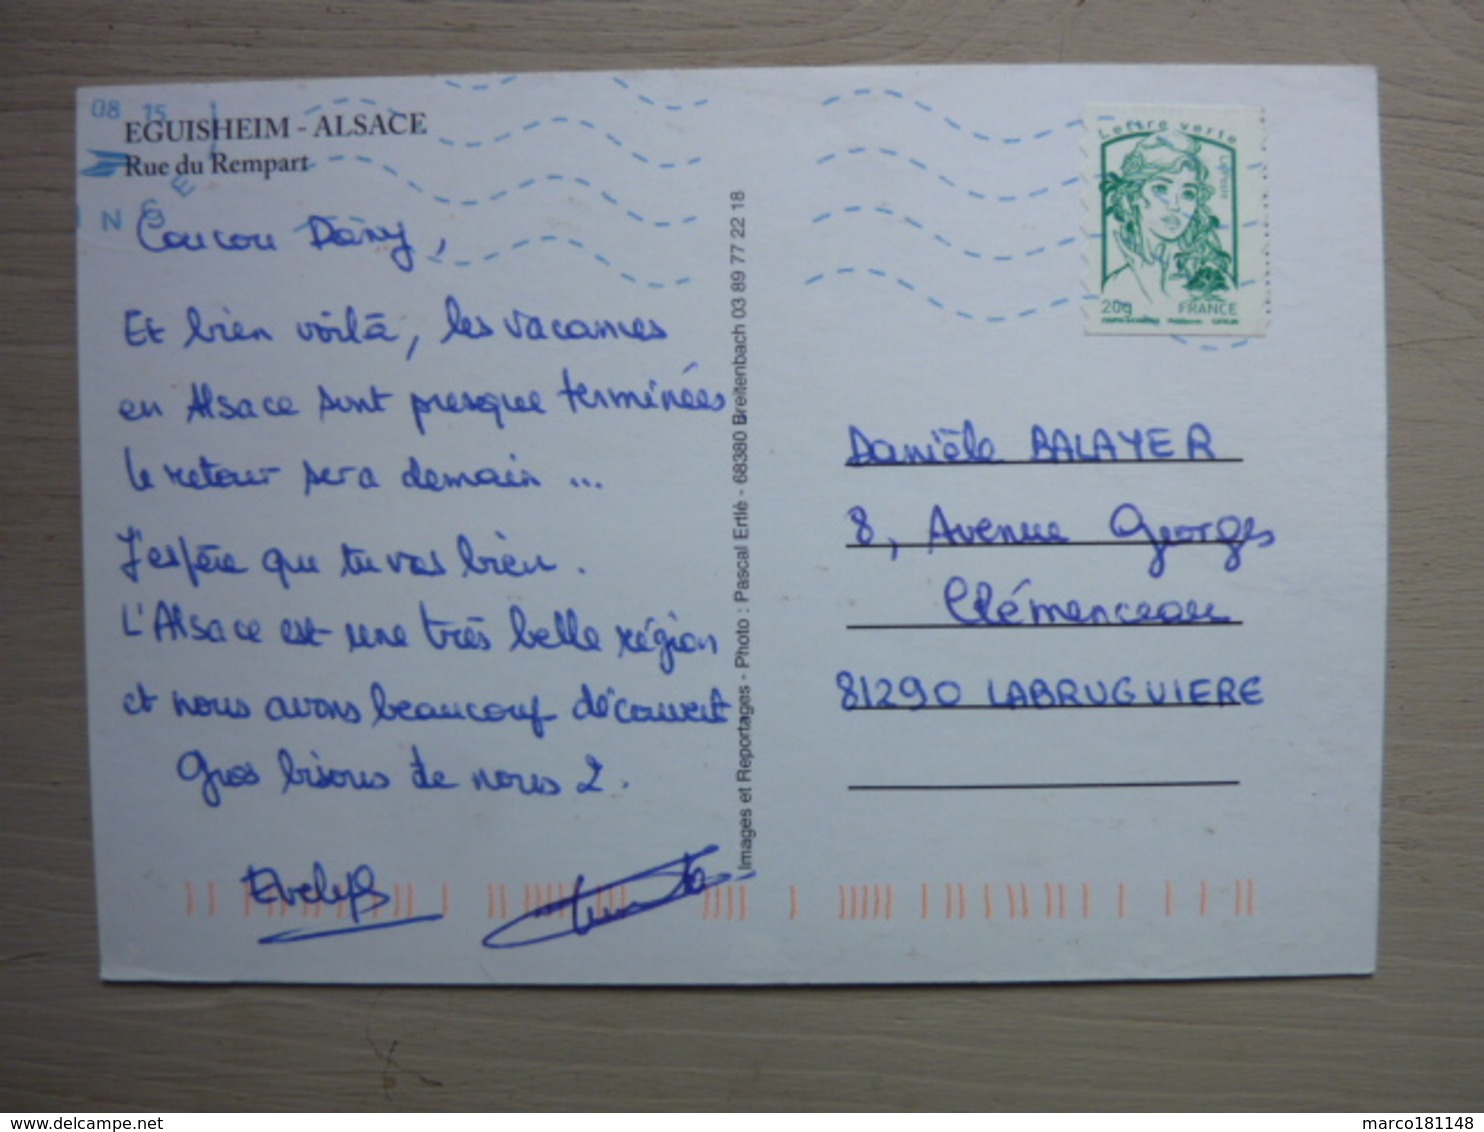 08 15
EGUISHEIM - ALSACE
Rue du Rempart
Coucou Dany,
Et bien voilà, les vacances
en Alsace sont presque terminées
le retour sera demain ...
J'espère que tu vas bien.
L'Alsace est une très belle région
et nous avons beaucoup découvert
Gros bisous de nous 2.
Images et Reportages - Photo : Pascal Ertlé - 68380 Breitenbach 03 89 77 22 18
Lettre verte
20g FRANCE
Danièle BALAYER
8, Avenue Georges
Clémenceau
81290 LABRUGUIERE
marco181148